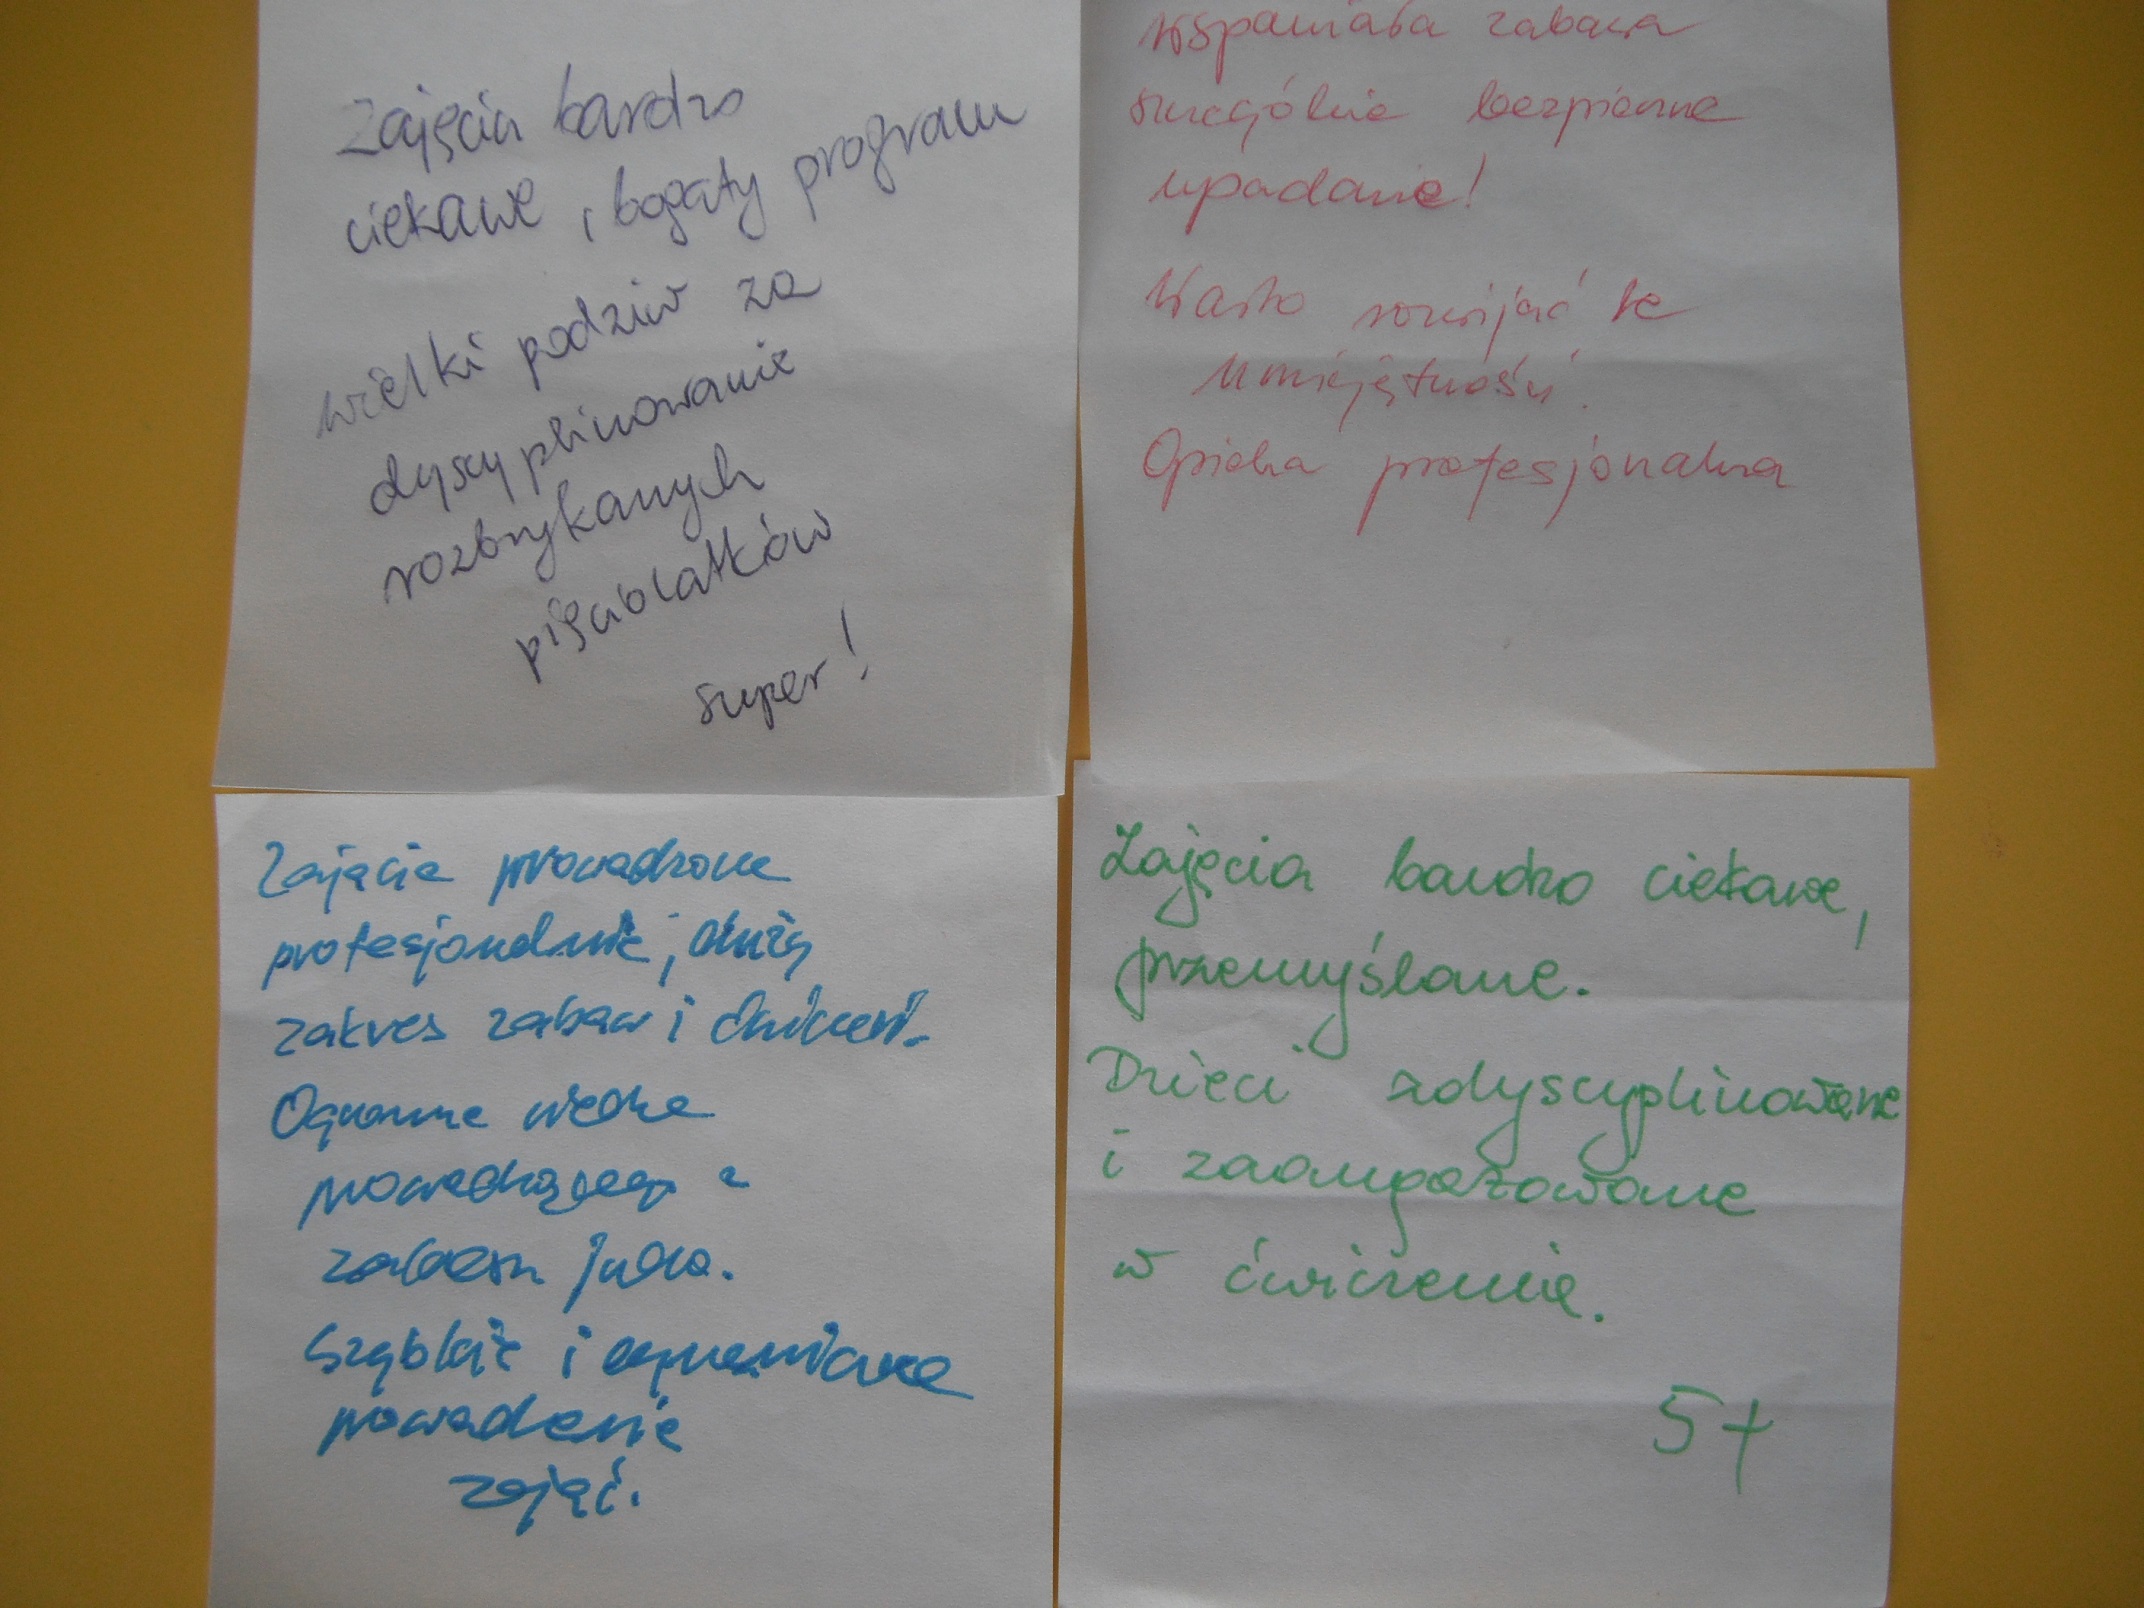 Zajęcia bardzo
ciekawe, bogaty program
wielki podziw za
dyscyplinowanie
rozbrykanych
pięciolatków
super!
Wspaniała zabawa
szczególnie bezpieczne
upadanie!
Warto rozwijać te
umiejętności.
Opieka profesjonalna
Zajęcia prowadzone
profesjonalnie, duży
zakres zabaw i ćwiczeń.
Ogromna wiedza
prowadzącego z
zakresu judo.
Szybkie i
prowadzenie
zajęć.
Zajęcia bardzo ciekawe,
przemyślane.
Dzieci zdyscyplinowane
i zaangażowane
w ćwiczenia.
5+